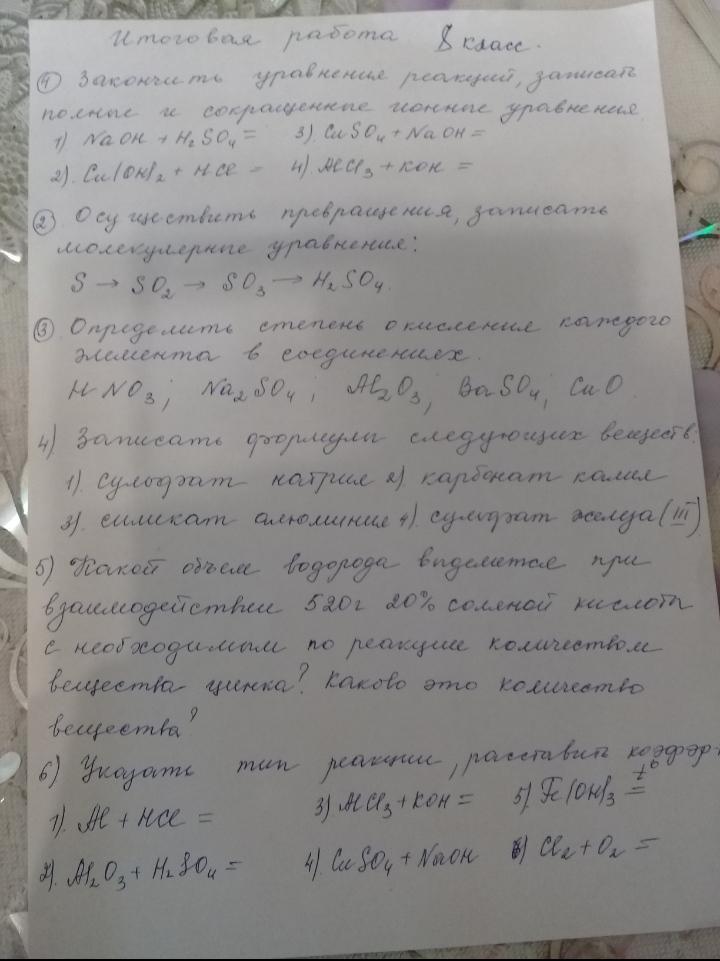 Итоговая работа 8 класс.
1) Закончить уравнения реакций, записать
полные и сокращенные ионные уравнения
1) NaOH + H2SO4 = 3) CuSO4 + NaOH =
2). Cu(OH)2 + HCl = 4) AlCl3 + KOH =
2) Осуществить превращения, записать
молекулерные уравнения:
S → SO2 → SO3 → H2SO4.
3) Определить степень окисления каждого
элемента в соединениях.
HNO3; Na2SO4; Al2O3; BaSO4; CuO
4) Записать формулы следующих веществ:
1). сульфат натрия 2) карбонат калия
3). силикат алюминия 4). сульфат железа (III)
5) Какой объем водорода выделится при
взаимодействии 520г 20% соляной кислоты
с необходимым по реакции количеством
вещества цинка? Каково это количество
вещества?
6) Указать тип реакции, расставить коэфф-
1). Al + HCl = 3) AlCl3 + KOH = 5) Fe(OH)3 t°=
2). Al2O3 + H2SO4 = 4) CuSO4 + NaOH 6) Cl2 + O2 =